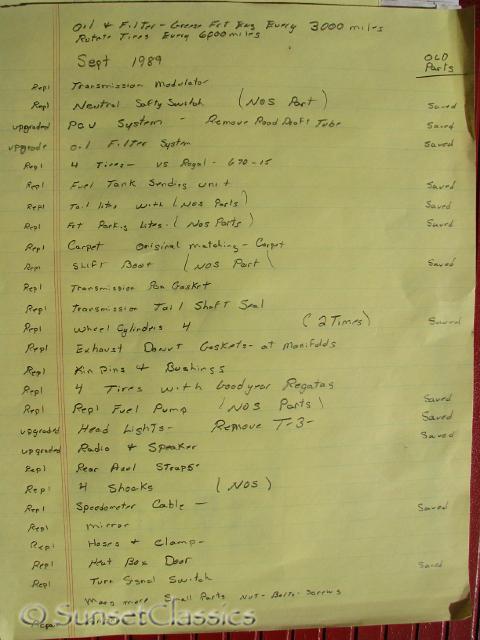 Oil & Filter - Grease Frt End Every 3000 miles
Rotate Tires Every 6000 miles
Sept 1989
OLD Parts
Repl Transmission Modulator
Repl Neutral Safty Switch (NOS Part) Saved
upgraded PCV System - Remove Road Draft Tube Saved
upgrade Oil Filter System Saved
Repl 4 Tires - US Royal - 670-15
Repl Fuel Tank Sending unit Saved
Repl Tail lites with (NOS Parts) Saved
Repl Frt Parking Lites. (NOS Parts) Saved
Repl Carpet Original matching - Carpet
Repl Shift Boot (NOS Part) Saved
Repl Transmission Pan Gasket
Repl Transmission Tail Shaft Seal
Repl Wheel Cylinders 4 (2 Times) Saved
Repl Exhaust Donut Gaskets - at Manifolds
Repl Kin Pins & Bushings
Repl 4 Tires with Goodyear Regatas
Repl Repl Fuel Pump (NOS Parts) Saved
upgraded Head Lights - Remove T-3 - Saved
upgraded Radio & Speaker Saved
Repl Rear Axel Straps
Repl 4 Shocks (NOS)
Repl Speedometer Cable - Saved
Repl Mirror
Repl Hoses & Clamp -
Repl Heat Box Door Saved
Repl Turn Signal Switch
Many more Small Parts Nut - Bolts - Screws
Repair
© SunsetClassics